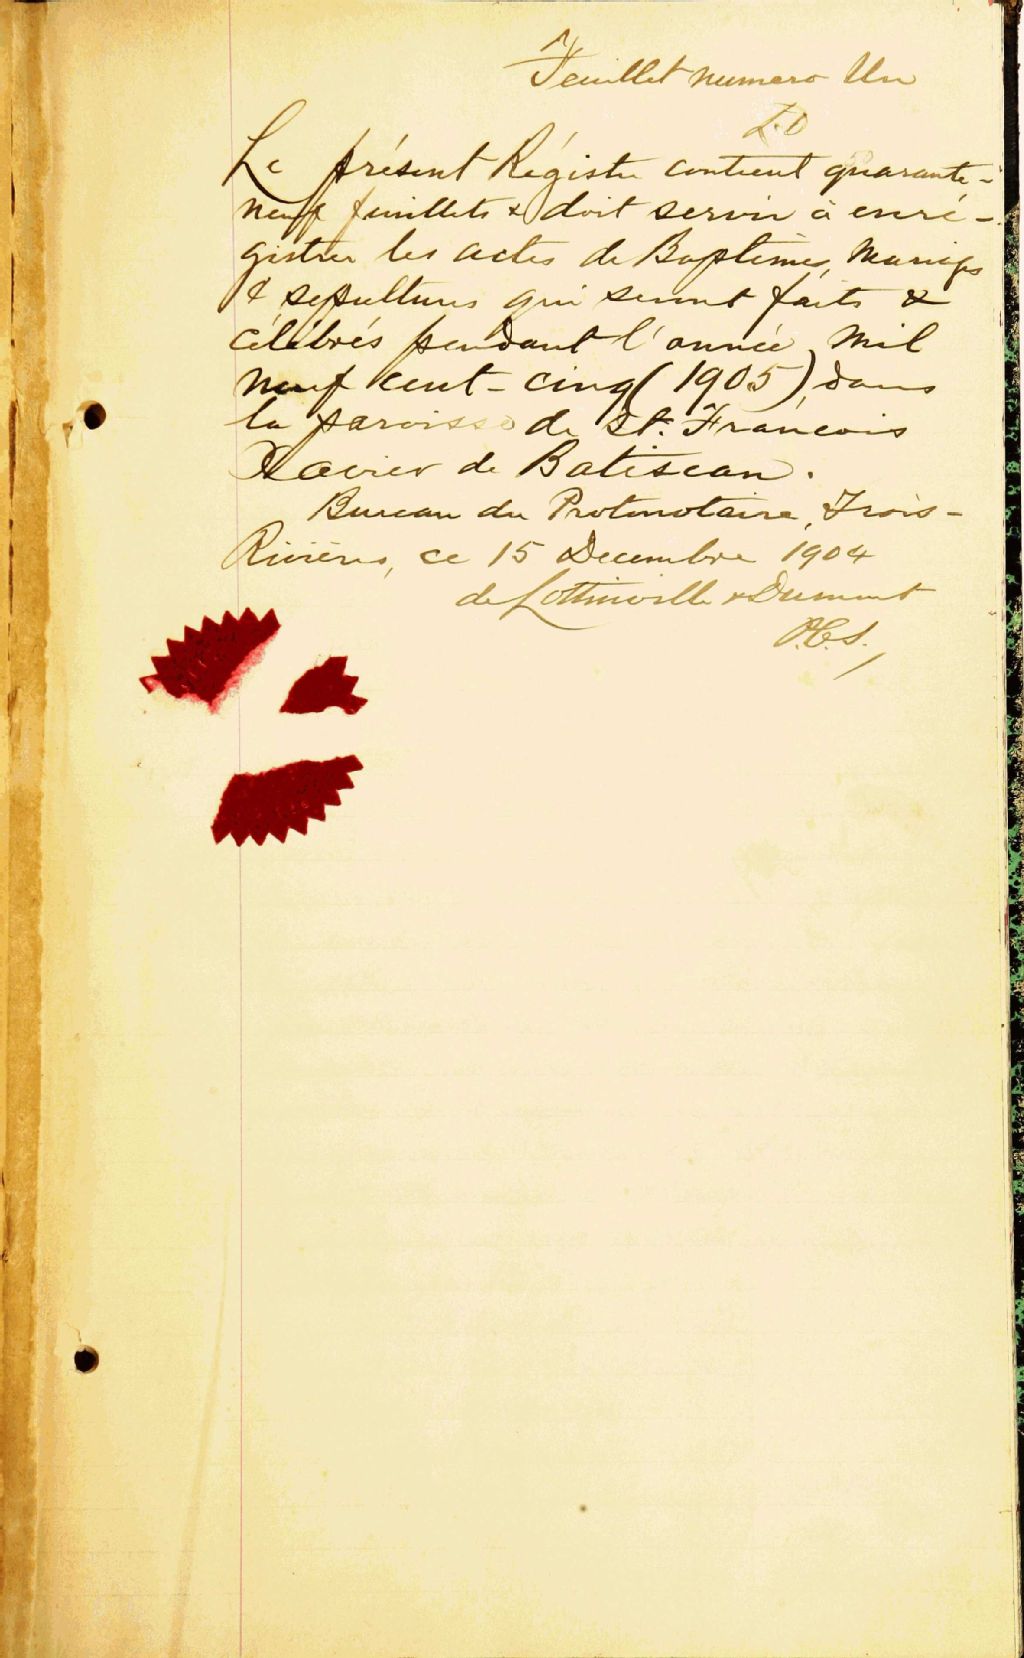 Feuillet numero Un
L.D
Le présent Régistre contient quarante-
neuf feuillets & doit servir à enré-
gistrer les actes de Baptêmes, Mariages
& sepultures qui seront faits &
célébrés pendant l'année mil
neuf cent-cinq (1905), dans
la paroisse de St. François
Xavier de Batiscan.
Bureau du Protonotaire, Trois-
Rivières, ce 15 Decembre 1904
de Lottinville & Dumont
P.C.S.